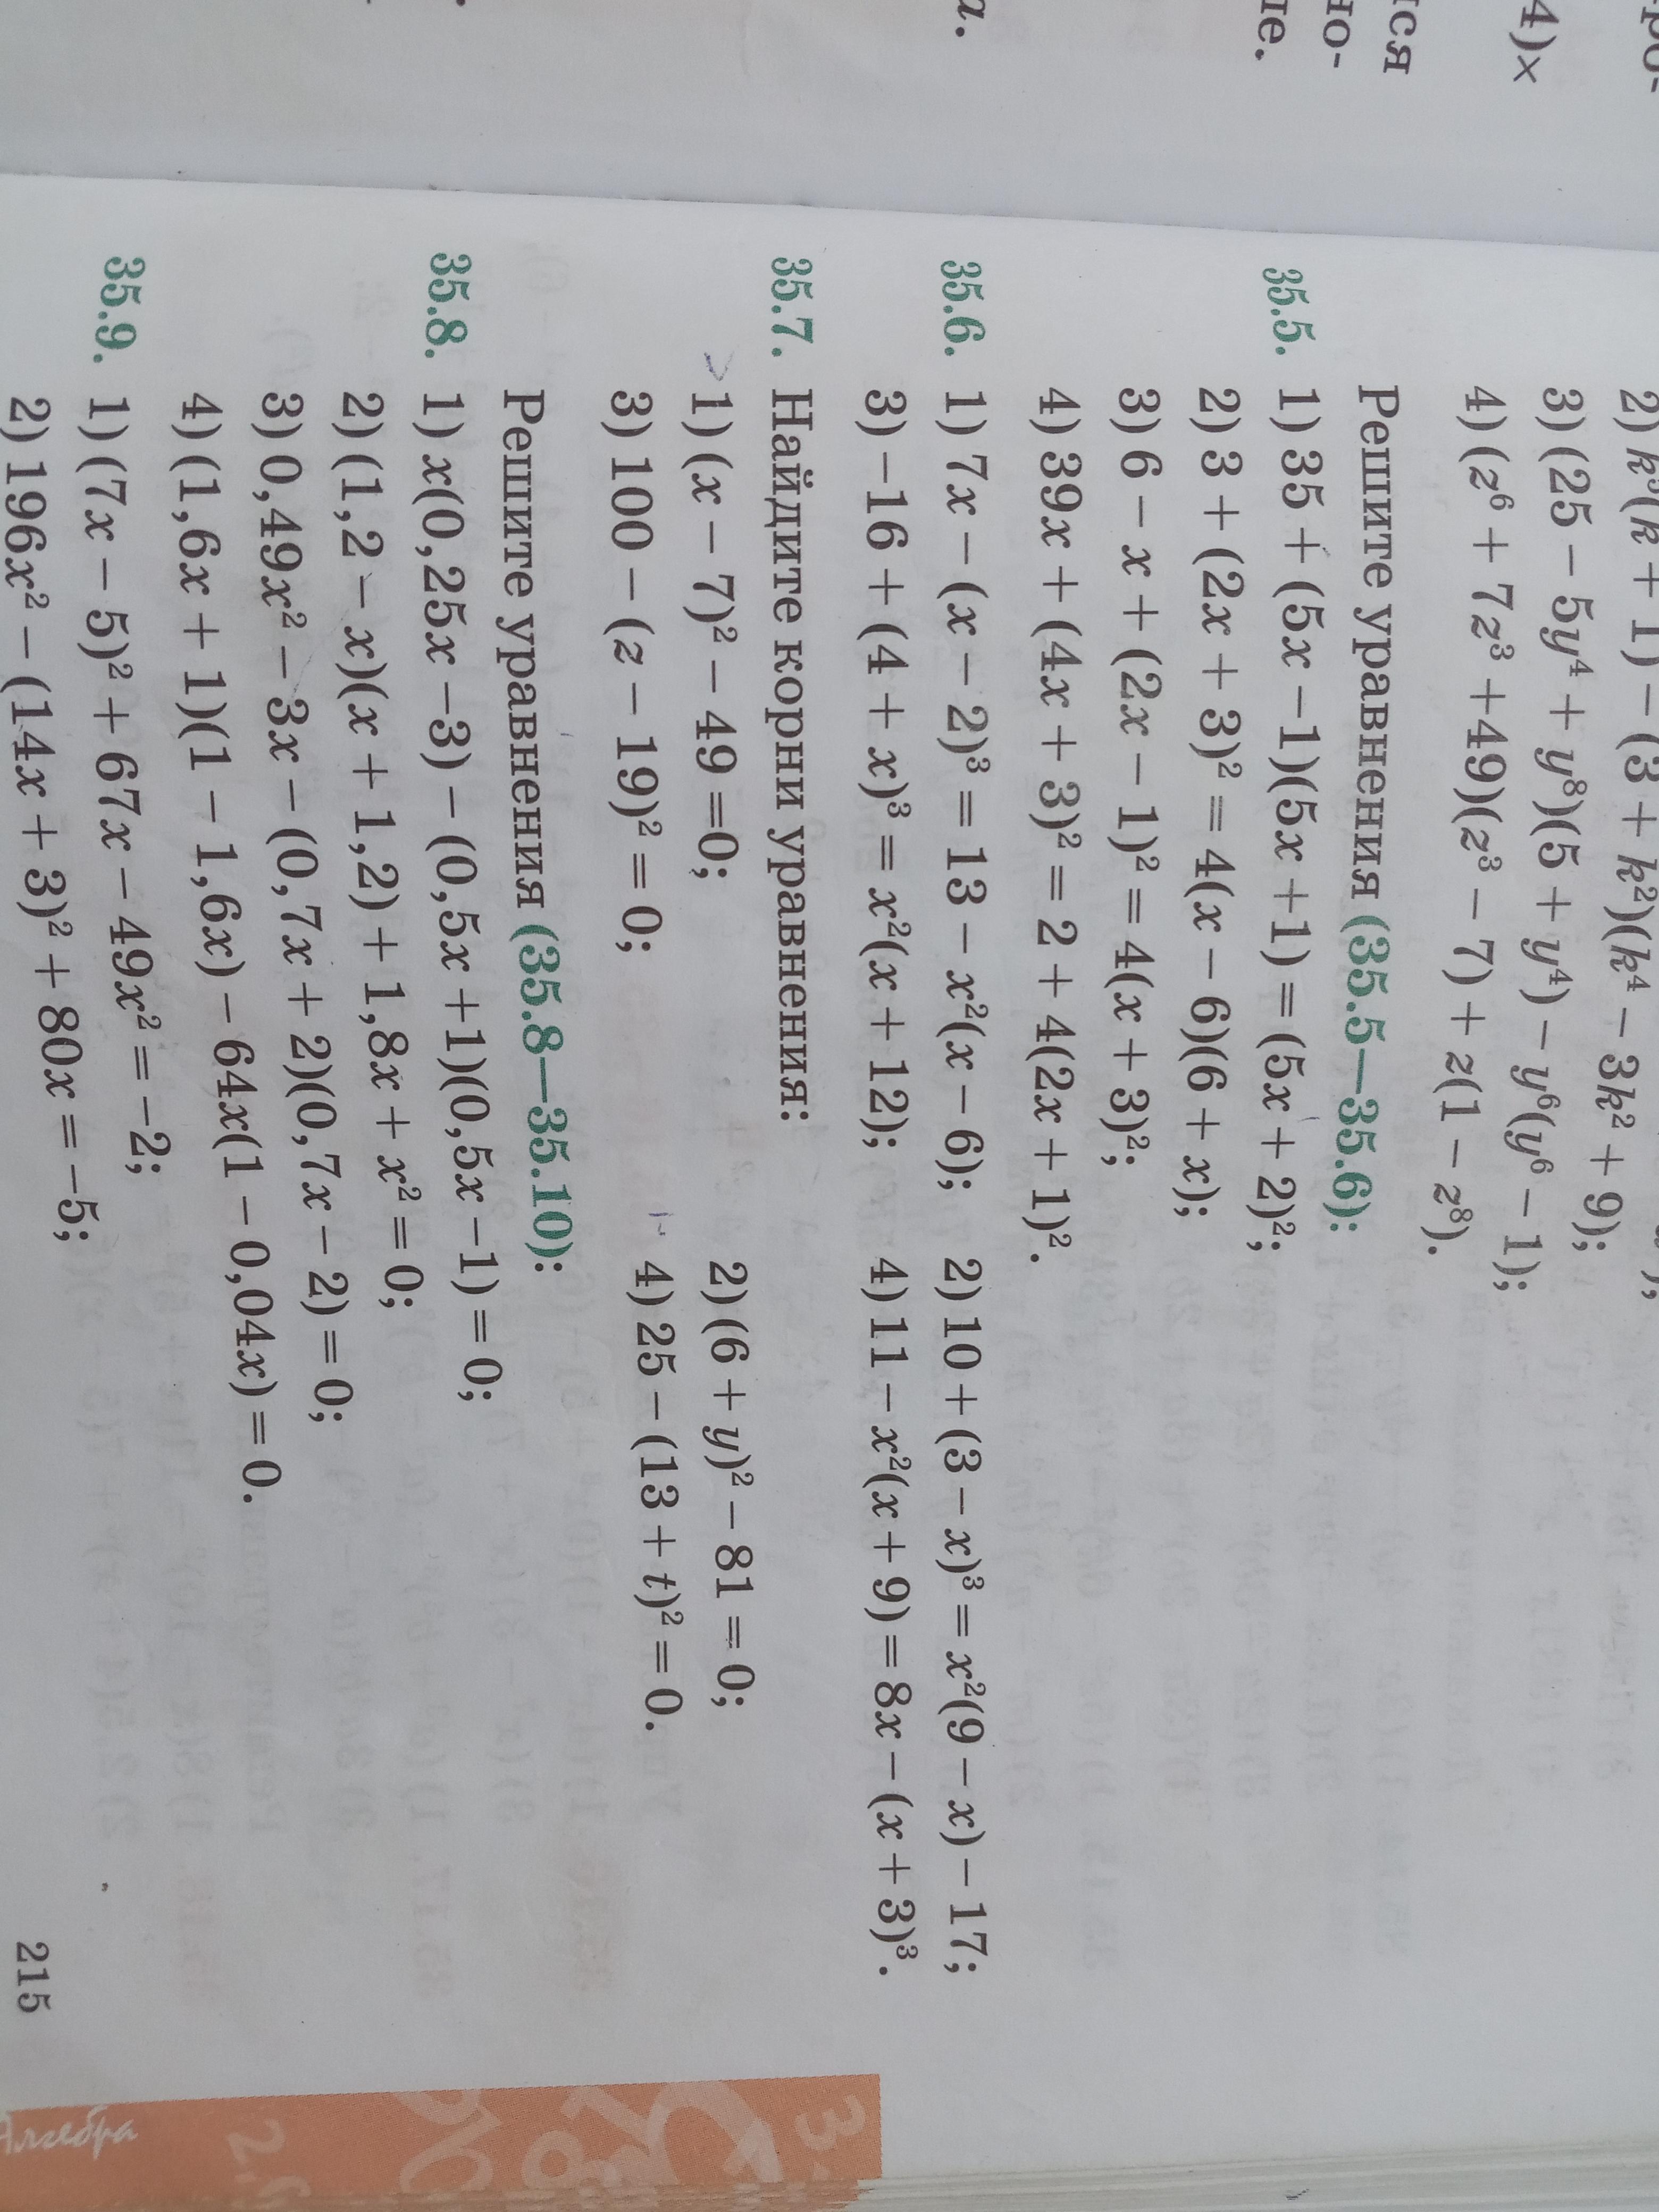 4)×
тся
но-
а.
2) k³(k + 1) − (3 + k²)(k⁴ − 3k² + 9);
3) (25 − 5y⁴ + y⁸)(5 + y⁴) − y⁶(y⁶ − 1);
4) (z⁶ + 7z³ + 49)(z³ − 7) + z(1 − z⁸).
Решите уравнения (35.5—35.6):
35.5. 1) 35 + (5x −1)(5x +1) = (5x + 2)²;
2) 3 + (2x + 3)² = 4(x − 6)(6 + x);
3) 6 − x + (2x − 1)² = 4(x + 3)²;
4) 39x + (4x + 3)² = 2 + 4(2x + 1)².
35.6. 1) 7x − (x − 2)³ = 13 − x²(x − 6); 2) 10 + (3 − x)³ = x²(9 − x) − 17;
3) −16 + (4 + x)³ = x²(x + 12); 4) 11 − x²(x + 9) = 8x − (x + 3)³.
35.7. Найдите корни уравнения:
1) (x − 7)² − 49 =0; 2) (6 + y)² − 81 = 0;
3) 100 − (z − 19)² = 0; 4) 25 − (13 + t)² = 0.
Решите уравнения (35.8—35.10):
35.8. 1) x(0,25x −3) − (0,5x +1)(0,5x −1) = 0;
2) (1,2 − x)(x + 1,2) + 1,8x + x² = 0;
3) 0,49x² − 3x − (0,7x + 2)(0,7x − 2) = 0;
4) (1,6x + 1)(1 − 1,6x) − 64x(1 − 0,04x) = 0.
35.9. 1) (7x − 5)² + 67x − 49x² = −2;
2) 196x² − (14x + 3)² + 80x = −5;
215
Алгебра